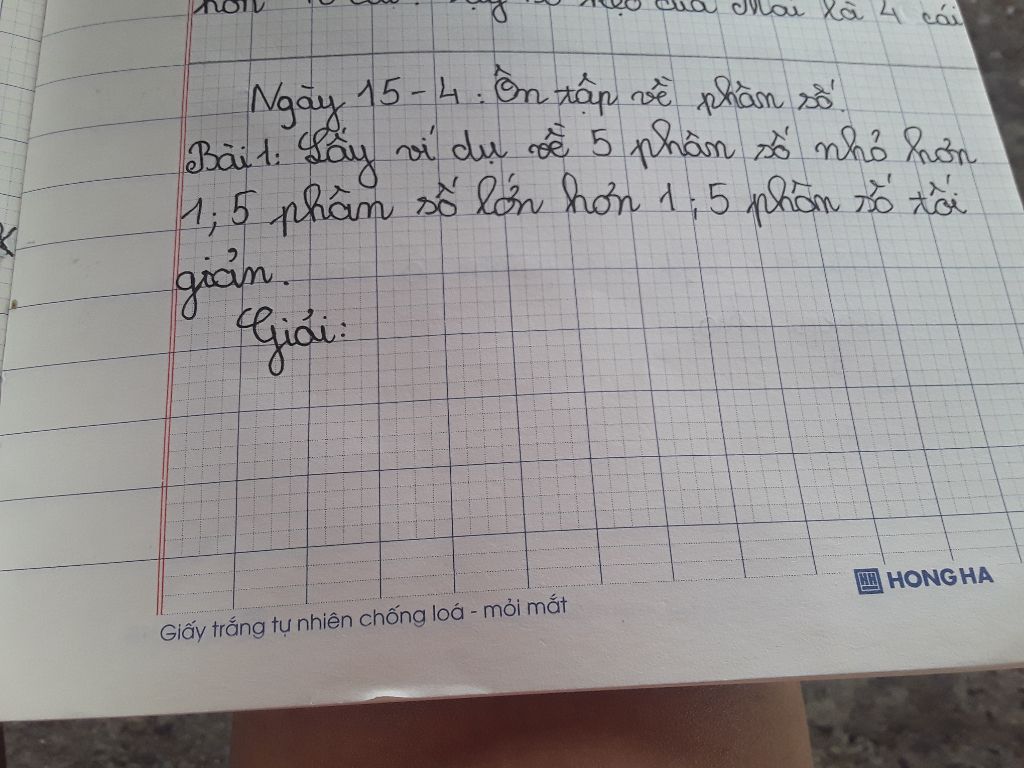 hơn
của Mai là 4 cái
Ngày 15-4: Ôn tập về phân số.
Bài 1: Lấy ví dụ về 5 phân số nhỏ hơn
1; 5 phân số lớn hơn 1; 5 phân số tối
giản.
Giải:
HH HONG HA
Giấy trắng tự nhiên chống loá - mỏi mắt